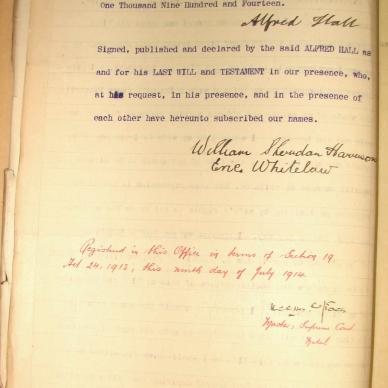 One Thousand Nine Hundred and Fourteen.
Alfred Hall
Signed, published and declared by the said ALFRED HALL as
and for his LAST WILL and TESTAMENT in our presence, who,
at his request, in his presence, and in the presence of
each other have hereunto subscribed our names.
William Sheridan
Eric Whitelaw
Registered in this Office in terms of Section 19,
Act 24, 1913, this ninth day of July 1914.
Master, Supreme Court
Natal